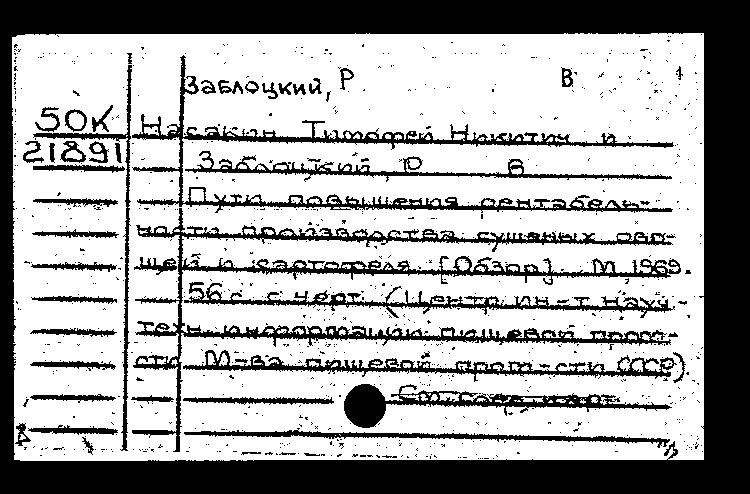 Заблоцкий, Р В 1
50К
21891
Насакин Тимофей Никитич и
Заблоцкий, Р В
Пути повышения рентабель-
ности производства сушеных ово-
щей и картофеля [Обзор]. М 1969.
56 с. с черт. (Центр ин-т науч-
техн информации пищевой пром-
сти М-ва пищевой пром-сти СССР)
См. след. карт.